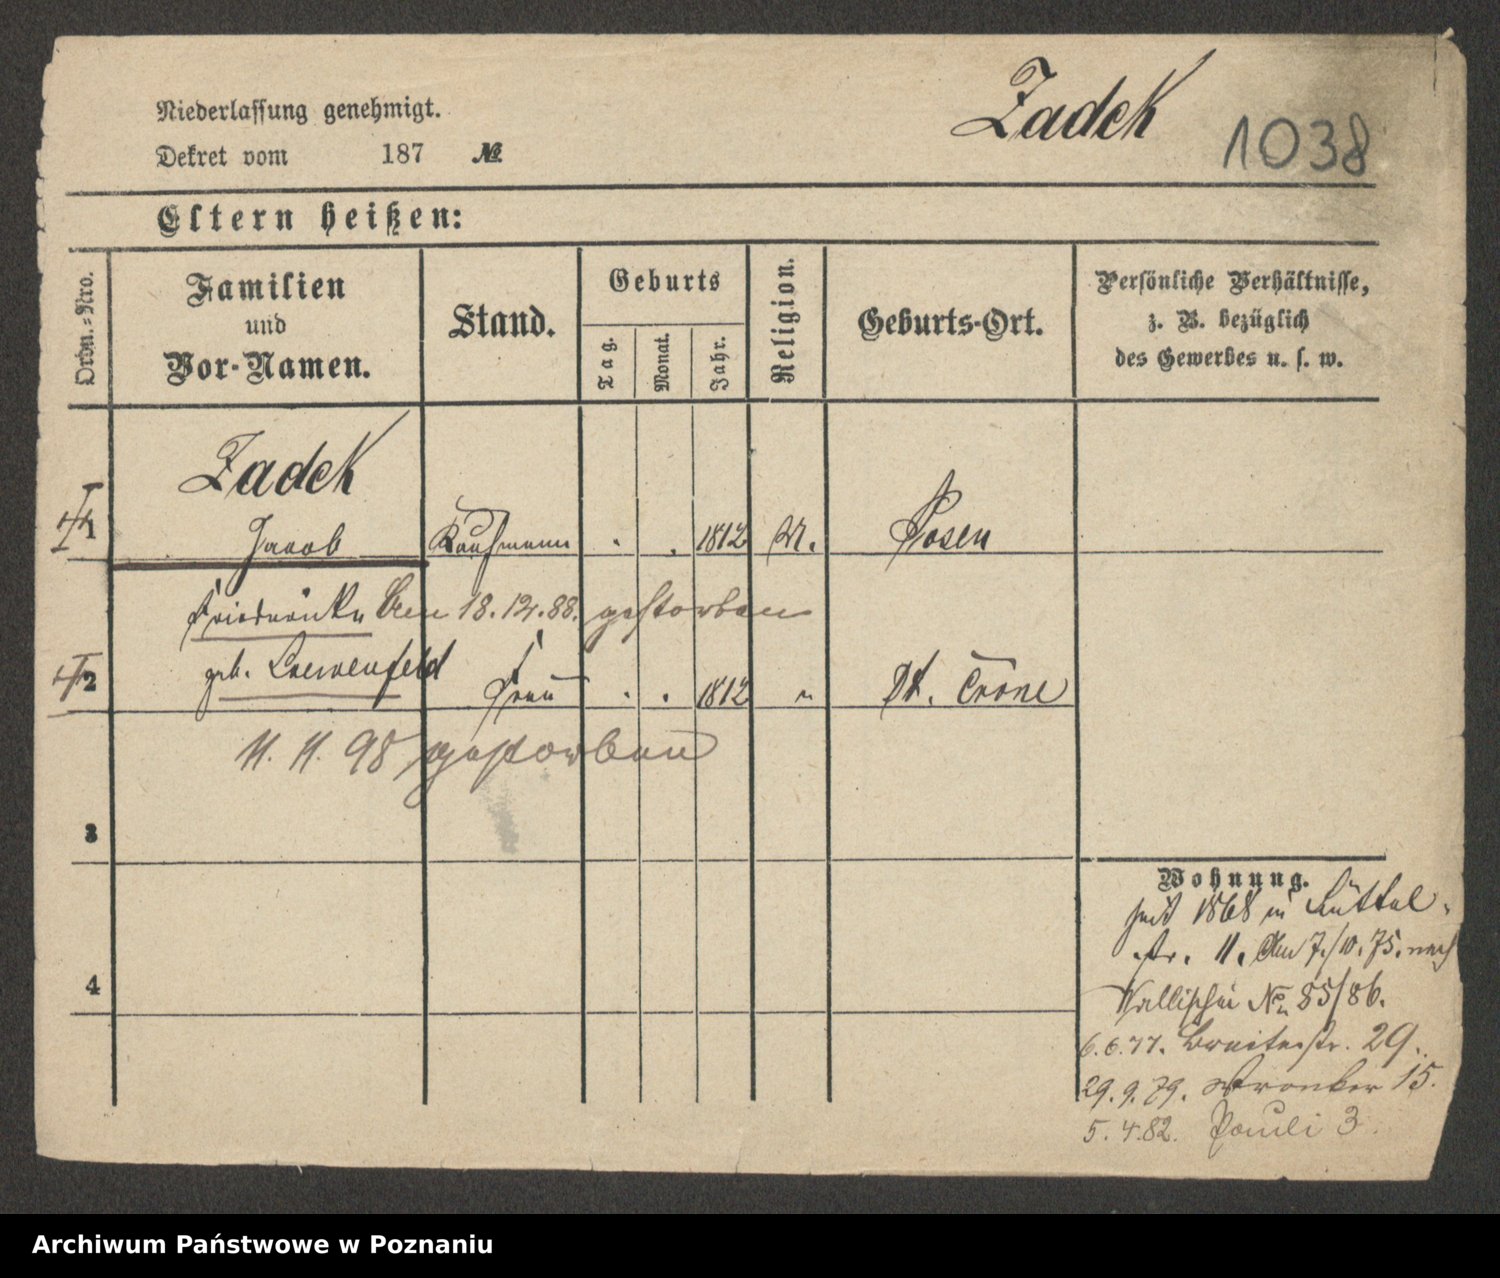 Niederlassung genehmigt.
Dekret vom 187 №
Zadek
1038
Eltern heißen:
Ordn.-Nro.
Familien
und
Vor-Namen.
Stand.
Geburts
Tag.
Monat.
Jahr.
Religion.
Geburts-Ort.
Persönliche Verhältnisse,
z. B. bezüglich
des Gewerbes u. s. w.
Zadek
1 Jacob Kaufmann 1812 M. Posen
Friederike Am 18.12.88. gestorben
geb. Loewenfeld
2 Frau 1812 " Dt. Crone
11. 11. 98 gestorben
3
4
Wohnung.
seit 1868 in Büttel-
str. 11. Am 7./10.75. nach
Wallischei No 85/86.
6.6.77. Breitestr. 29.
29.9.79. Wronker 15.
5.4.82. Pauli 3.
Archiwum Państwowe w Poznaniu